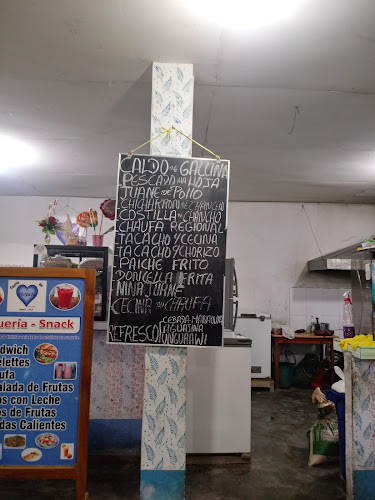 CALDO DE GALLINA
PESCADO EN HOJA
JUANE DE POLLO
CHICHARRON DE CHANCHO
COSTILLA DE CHANCHO
CHAUFA REGIONAL
TACACHO Y CECINA
TACACHO Y CHORIZO
PAICHE FRITO
DONCELLA FRITA
NINAJUANE
CECINA CON CHAUFA
REFRESCO
CEBADA-MARACUYA
AGUAJINA
UNGURAWI
uería - Snack
dwich
elettes
ufa
alada de Frutas
os con Leche
os de Frutas
das Calientes